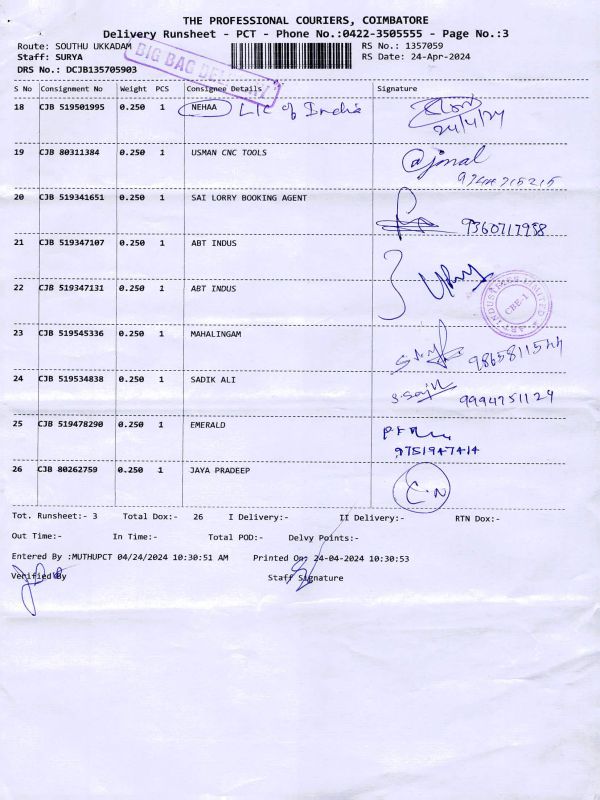 THE PROFESSIONAL COURIERS, COIMBATORE
Delivery Runsheet - PCT - Phone No.:0422-3505555 - Page No.:3
Route: SOUTHU UKKADAM RS No.: 1357059
Staff: SURYA RS Date: 24-Apr-2024
BIG BAG
DRS No.: DCJB135705903
S No Consignment No Weight PCS Consignee Details Signature
18 CJB 519501995 0.250 1 NEHAA LIC of India
24/4/24
19 CJB 80311384 0.250 1 USMAN CNC TOOLS
20 CJB 519341651 0.250 1 SAI LORRY BOOKING AGENT
9360717958
21 CJB 519347107 0.250 1 ABT INDUS
22 CJB 519347131 0.250 1 ABT INDUS
ABT INDUSTRIES LIMITED
CBE-1
23 CJB 519545336 0.250 1 MAHALINGAM
9865811544
24 CJB 519534838 0.250 1 SADIK ALI
9994751124
25 CJB 519478290 0.250 1 EMERALD
9751947414
26 CJB 80262759 0.250 1 JAYA PRADEEP
Tot. Runsheet:- 3 Total Dox:- 26 I Delivery:- II Delivery:- RTN Dox:-
Out Time:- In Time:- Total POD:- Delvy Points:-
Entered By :MUTHUPCT 04/24/2024 10:30:51 AM Printed On: 24-04-2024 10:30:53
Verified By Staff Signature